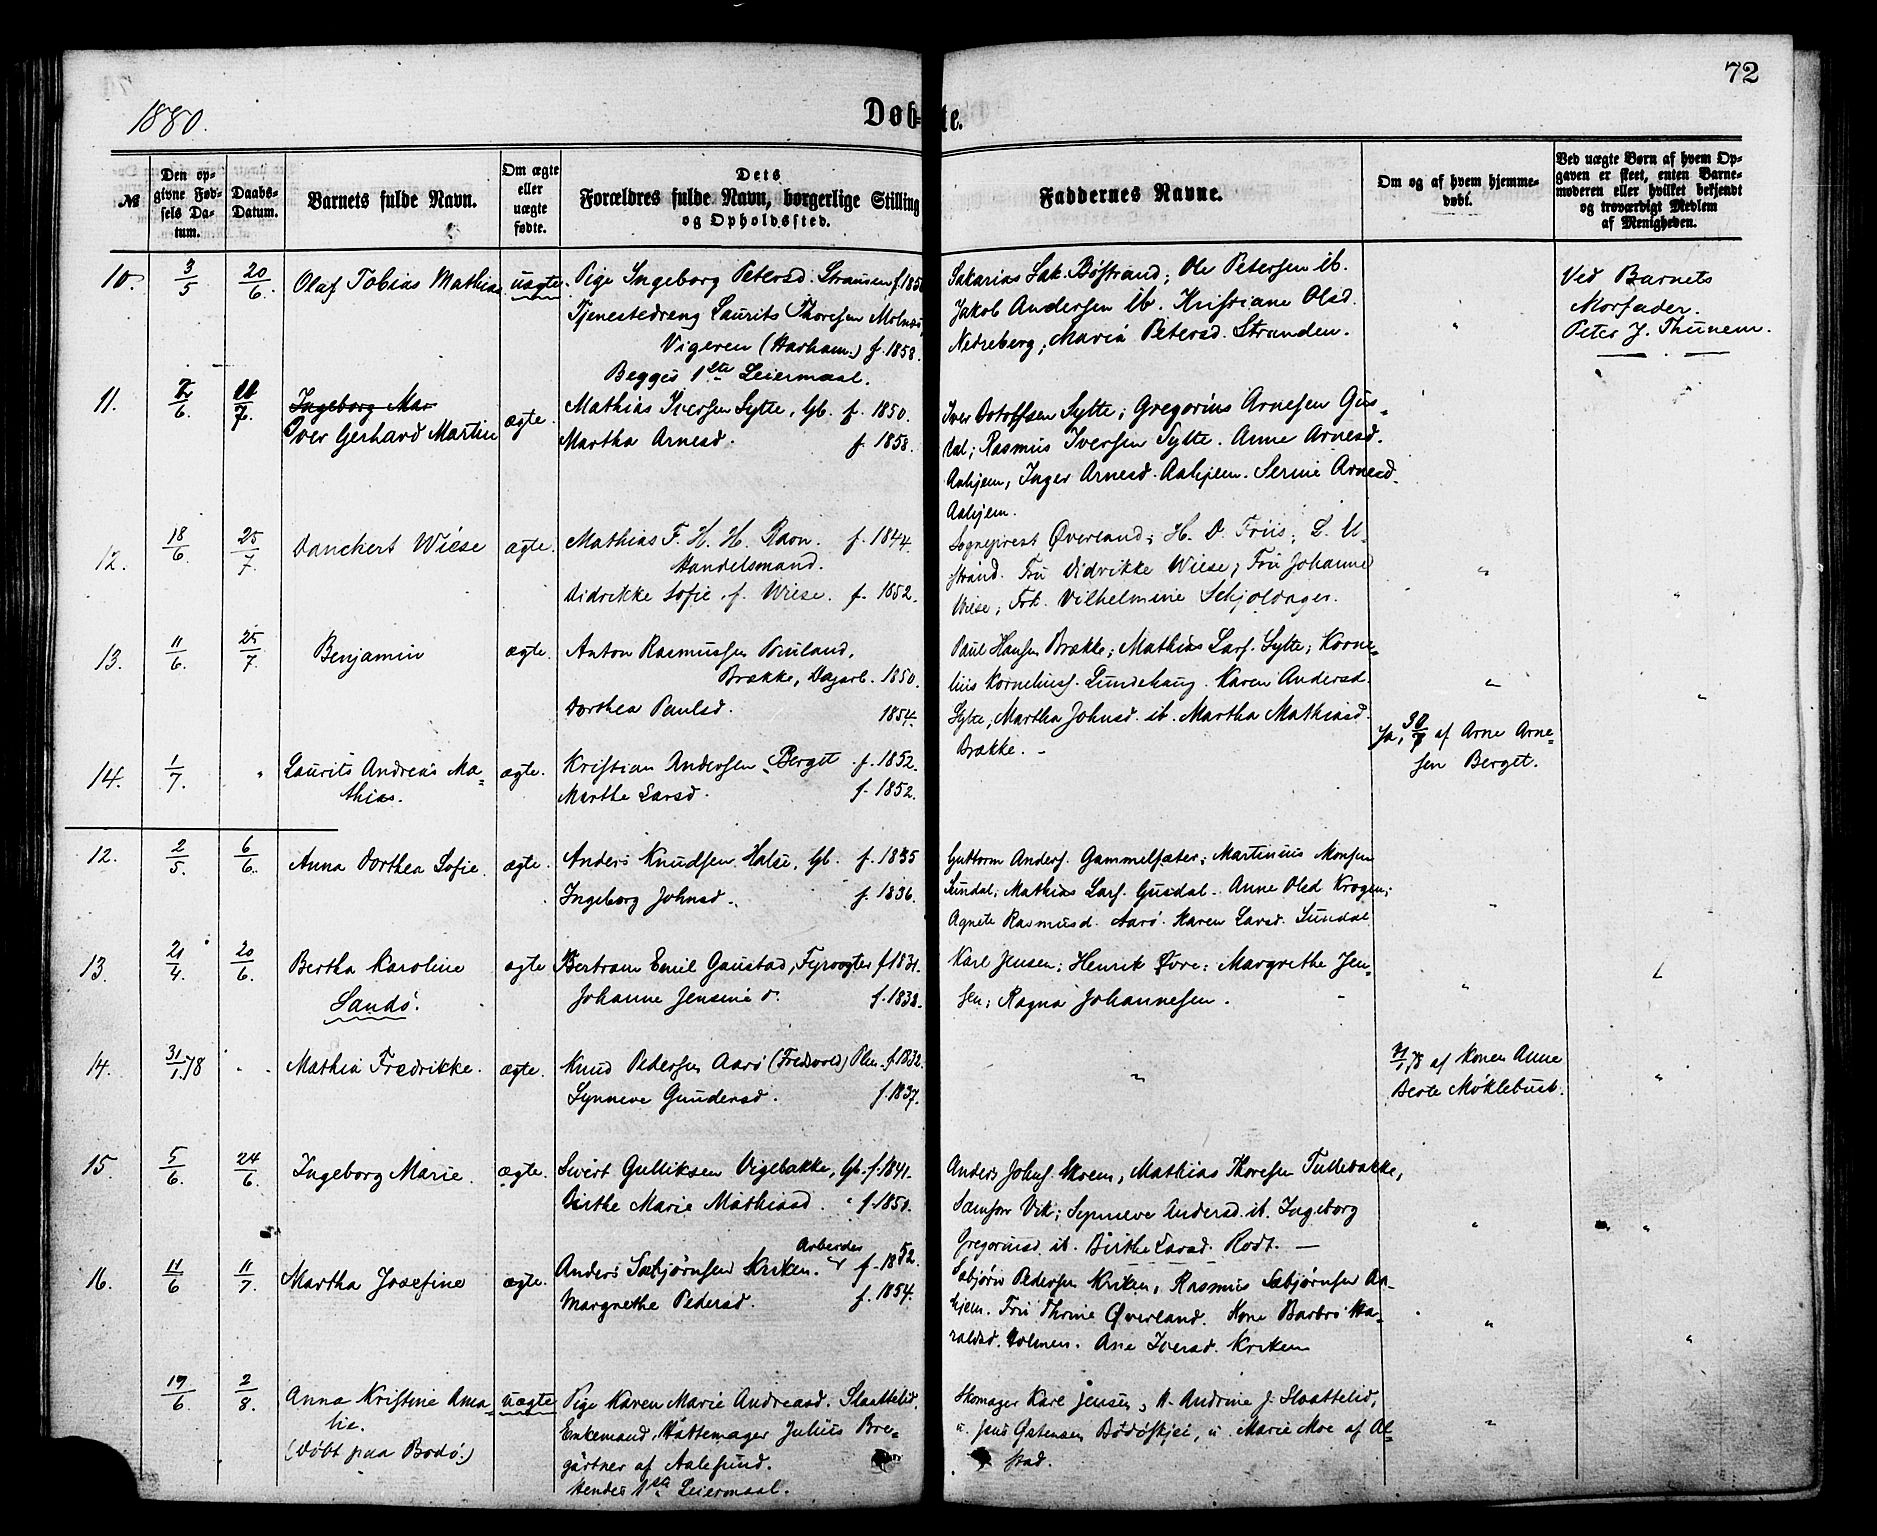 72
1880.
Døb-te.
№
Den op-
givne Fød-
sels Da-
tum.
Daabs-
Datum.
Barnets fulde Navn.
Om ægte
eller
uægte
fødte.
Dets
Forældres fulde Navn, borgerlige Stilling
og Opholdssted.
Faddernes Navne.
Om og af hvem hjemme-
døbt.
Ved uægte Børn af hvem Op-
gaven er skeet, enten Barne-
moderen eller hvilket bekjendt
og troværdigt Medlem
af Menigheden.
10. 3/5 20/6. Olaf Tobias Mathias uægte. Pige Ingeborg Petersd. f. 185
Tjenestedreng Laurits Thoresen
Vigeren (Harham.) f. 1858.
Begges 1ste Leiermaal.
Sakarias Sak. Bøstrand; Ole Petersen ib.
Jakob Andersen ib. Kristiane Olsd.
Nedreberg; Maria Petersd. Stranden.
"
Ved Barnets
Morfader.
Peter J. Thunem.
11. 7/6. 11/7. Ingeborg Mar
Iver Gerhard Martin ægte. Mathias Iversen Sylte, Gb. f. 1850.
Martha Arnesd. f. 1858.
Iver Sylte; Gregorius Arnesen Gus-
dal; Rasmus Iversen Sylte. Anne Arnesd.
Aahjem, Inger Arnesd. Aahjem. Serine Arnesd.
Aahjem.
12. 18/6. 25/7. Danckert Wiese ægte. Mathias F. H. H. Ravn. f. 1844.
Handelsmand.
Didrikke Sofie f. Wiese. f. 1852.
Sogneprest Øverland; H. D. Friis; L. U-
strand. Fru Didrikke Wiese; Fru Johanne
Wiese; Frk. Vilhelmine Schjoldager.
"
13. 11/6. 25/7. Benjamin ægte. Anton Rasmussen
Brække, Dagarb. 1850.
Dorthea Paulsd. 1854.
Paul Hansen Brække; Mathias Lars. Sylte; Korne-
lius Korneliuss. Lundehaug. Karen Andersd.
Sylte; Martha Johnsd. ib. Martha Mathiasd.
Brække. -
"
"
14. 1/7. " Laurits Andreas Ma-
thias. ægte. Kristian Andersen Berget f. 1852.
Marthe Larsd. f. 1852.
Ja, 30/7 af Arne Arne-
sen Berget.
12. 2/5. 6/6. Anna Dorthea Sofie. ægte. Anders Knudsen Halse, Gb. f. 1835
Ingeborg Johnsd. f. 1836.
Guttorm Anders. Gammelsæter; Martinus Monsen
Sundal; Mathias Lars. Gusdal. Anne Olsd Krogen;
Agnete Rasmusd. Aarö. Karen Larsd. Sundal
"
13 21/4. 20/6. Bertha Karoline
Sandö. ægte Bertram Emil Gaustad, Fyrvogter f. 1831.
Johanne Jensine f. 1838.
Karl Jensen; Henrik Øvre; Margrethe Jen-
sen; Ragna Johannesen.
"
14. 31/1.78 " Mathea Fredrikke. ægte. Knud Pedersen Aarö (Fredsvold) f. 1832.
Synneve Gundersd. f. 1837.
"
af Konen Anne
Berte Möklebust.
"
15. 5/6. 24/6. Ingeborg Marie. ægte. Sivert Gulliksen Vigebakke, Gb. f. 1841.
Birthe Marie Mathiasd. " f. 1850.
Anders Johns. Skrem, Mathias Thoresen Tullebakke,
Vik; Synneve Andersd. ib. Ingeborg
Gregoriusd. ib. Birthe Larsd. Rödt. —
"
"
16. 11/6 11/7. Martha Josefine ægte. Anders Sæbjörnsen Kriken. Arbeider f. 1852.
Margrethe Pedersd. f. 1854.
Sæbjörn Pedersen Kriken, Rasmus Sæbjørnsen Aa-
hjem. Fru Thrine Øverland. Kone Barbro Ha-
raldsd. Holmen. Ane Iversd. Kriken
"
"
19/6 2/8. Anna Kristine Ama-
lie.
(Döbt paa Bodö.) uægte Pige Karen Marie Andreasd. Slaattelid.
Enkemand, Hattemager Julius Bre-
gärtner af Aalesund.
Hendes 1ste Leiermaal.
Skomager Karl Jensen, Andrine J. Slaattelid,
u. Jens Østensen, u. Marie Moe af Al-
stad.
"